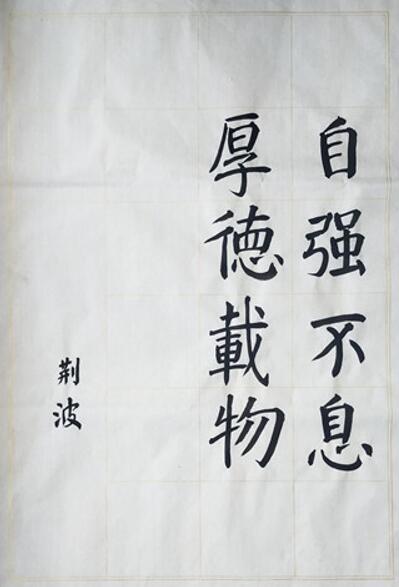 自强不息
厚德載物
荆波